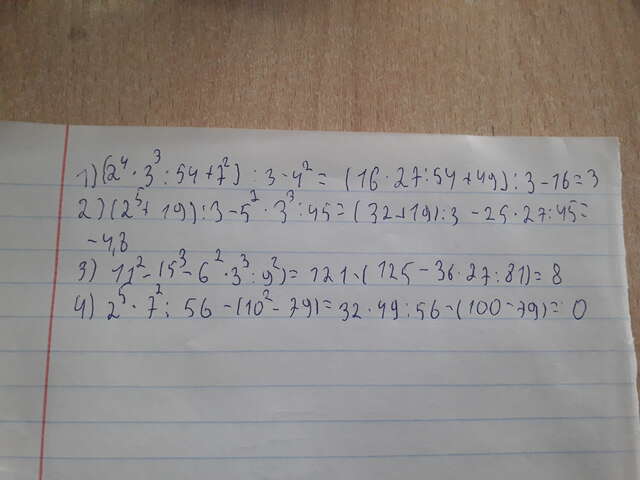 1) (2⁴·3³:54+7²):3-4²=(16·27:54+49):3-16=3
2) (2⁵+19):3-5²·3³:45=(32+19):3-25·27:45=
-4,8
3) 11²-(5³-6²·3³:9²)=121-(125-36·27:81)=8
4) 2⁵·7²:56-(10²-79)=32·49:56-(100-79)=0